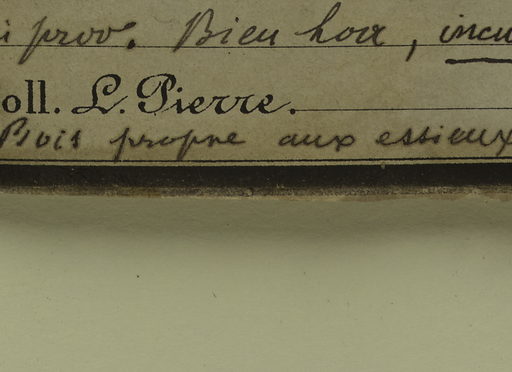 i prov. Bien hoa, incu
oll. L. Pierre.
Bois propre aux essieux